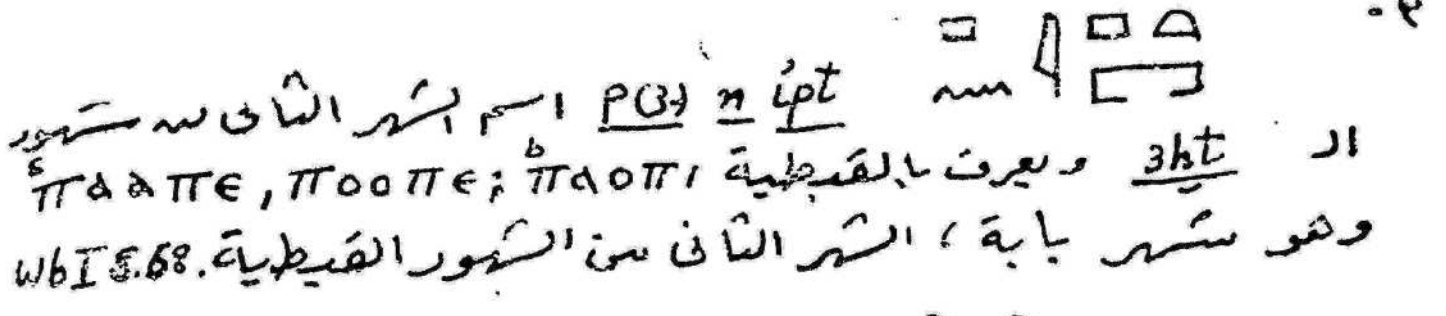 ٩.
p(3) n ipt اسم الشهر الثانى من شهور
الـ 3ḫt ويعرف بالقبطية ˢπααπε, ποοπε; ᵇπαοπι
وهو شهر بابة ؛ الشهر الثانى من الشهور القبطية. Wb I S.68